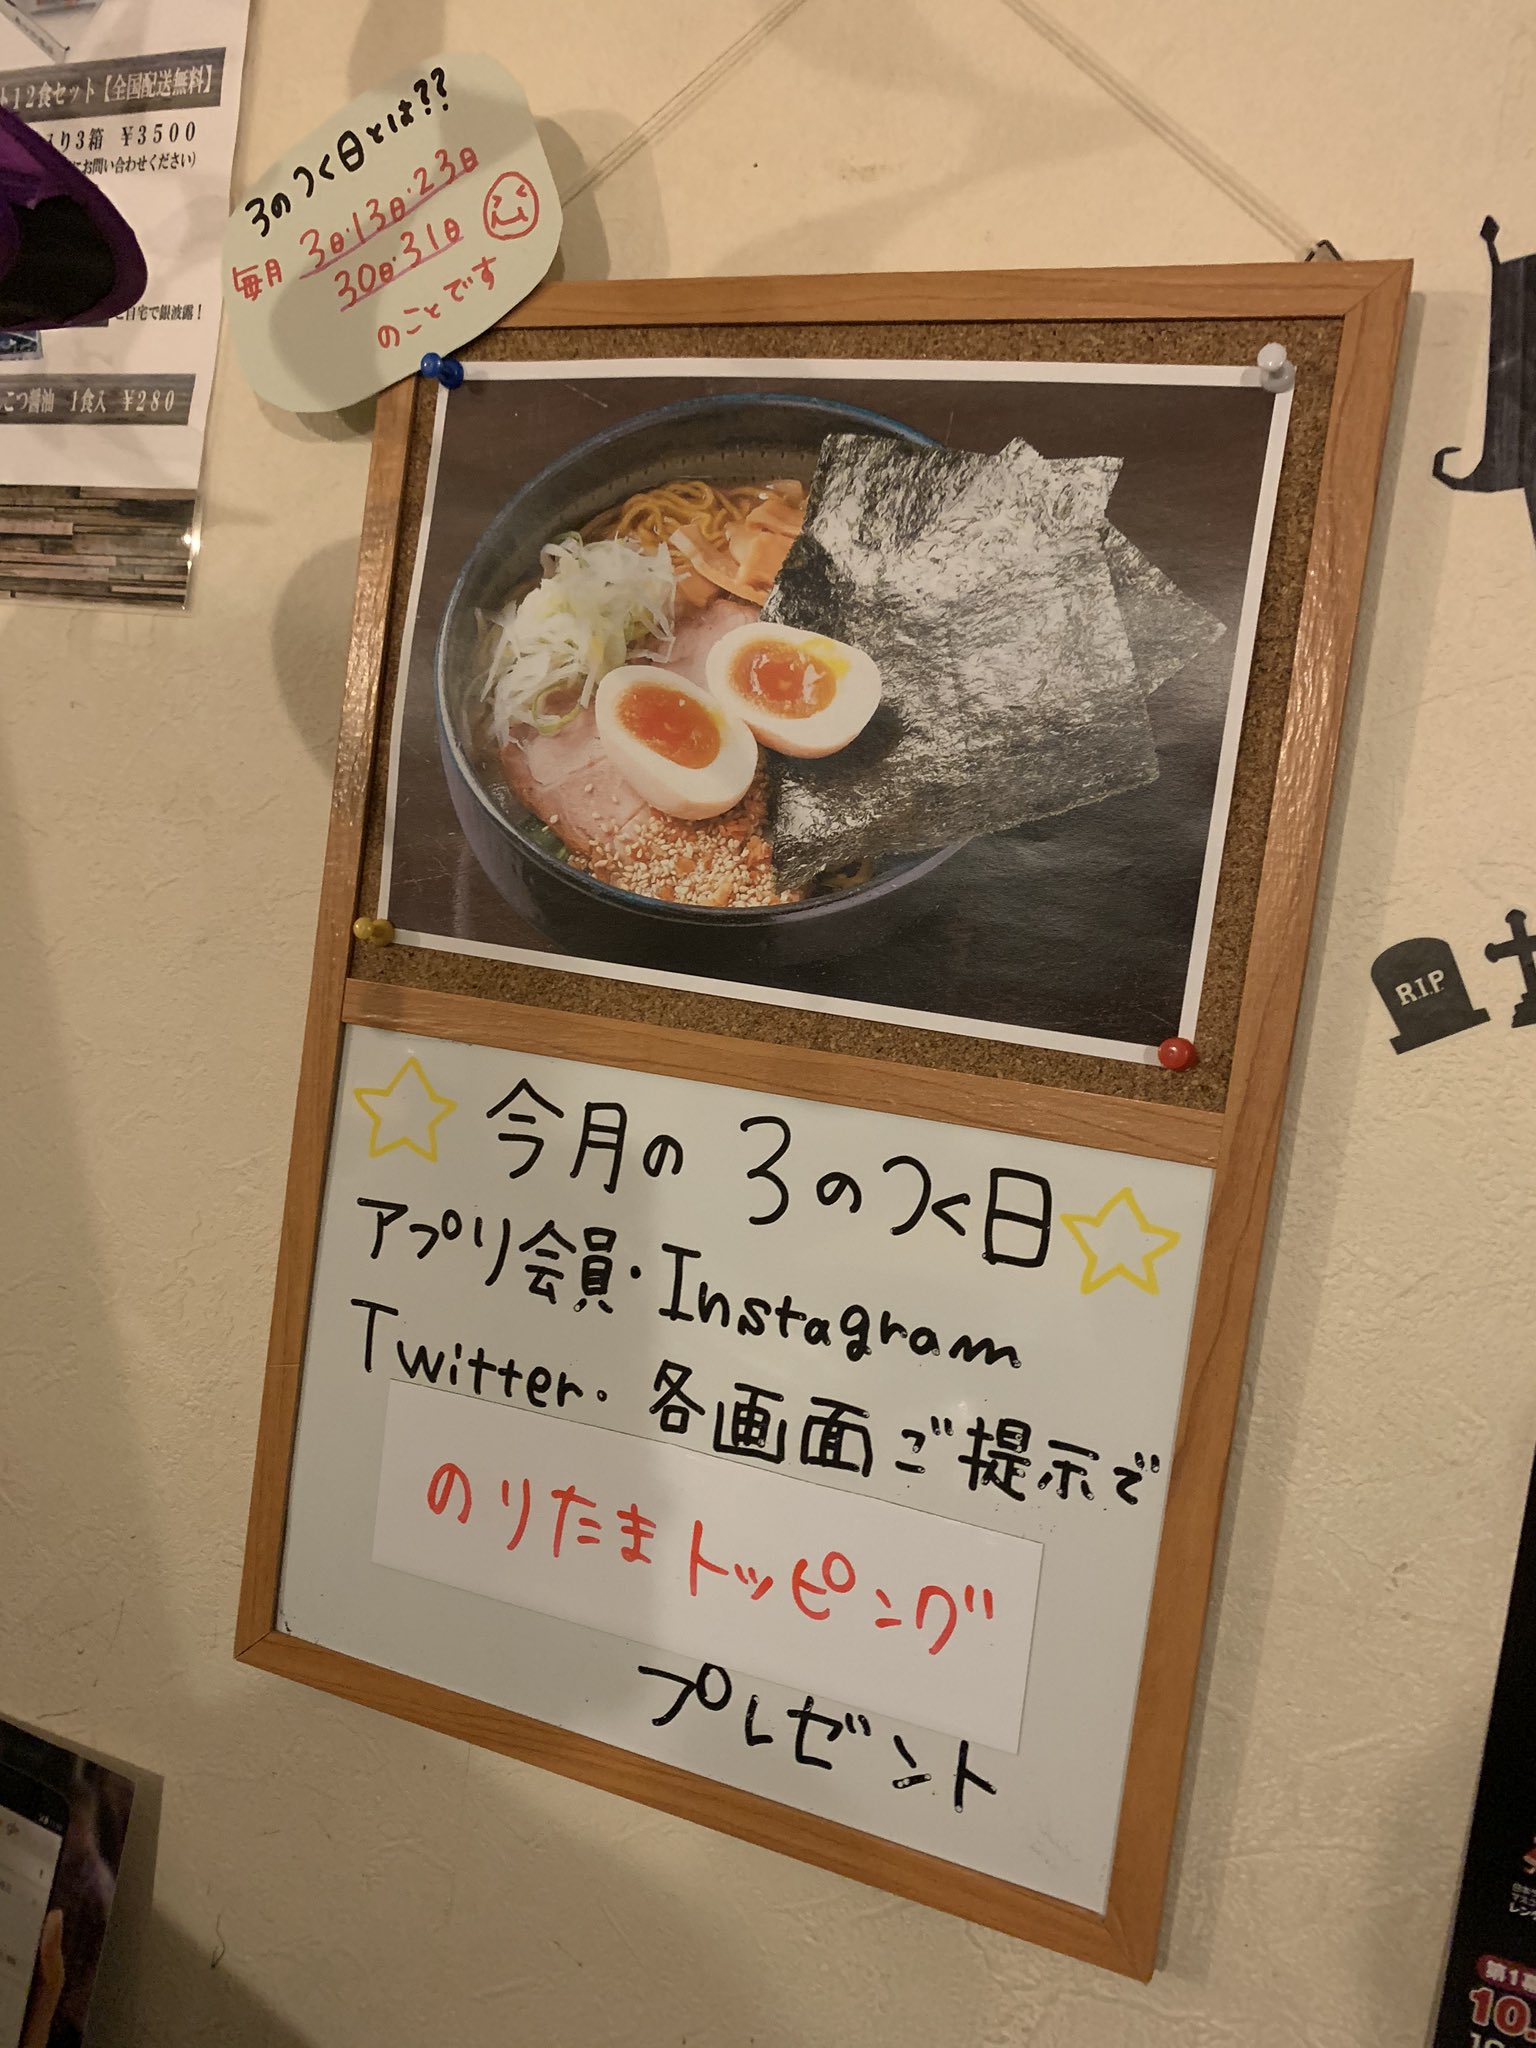 ト12食セット【全国配送無料】
入り3箱 ¥3500
にお問い合わせください）
ご自宅で銀波露！
こつ醤油 1食入 ¥280
3のつく日とは??
毎月 3日・13日・23日
30日・31日
のことです
R.I.P
今月の 3のつく日
アプリ会員・Instagram
Twitter・各画面ご提示で
のりたまトッピング
プレゼント
第1
10